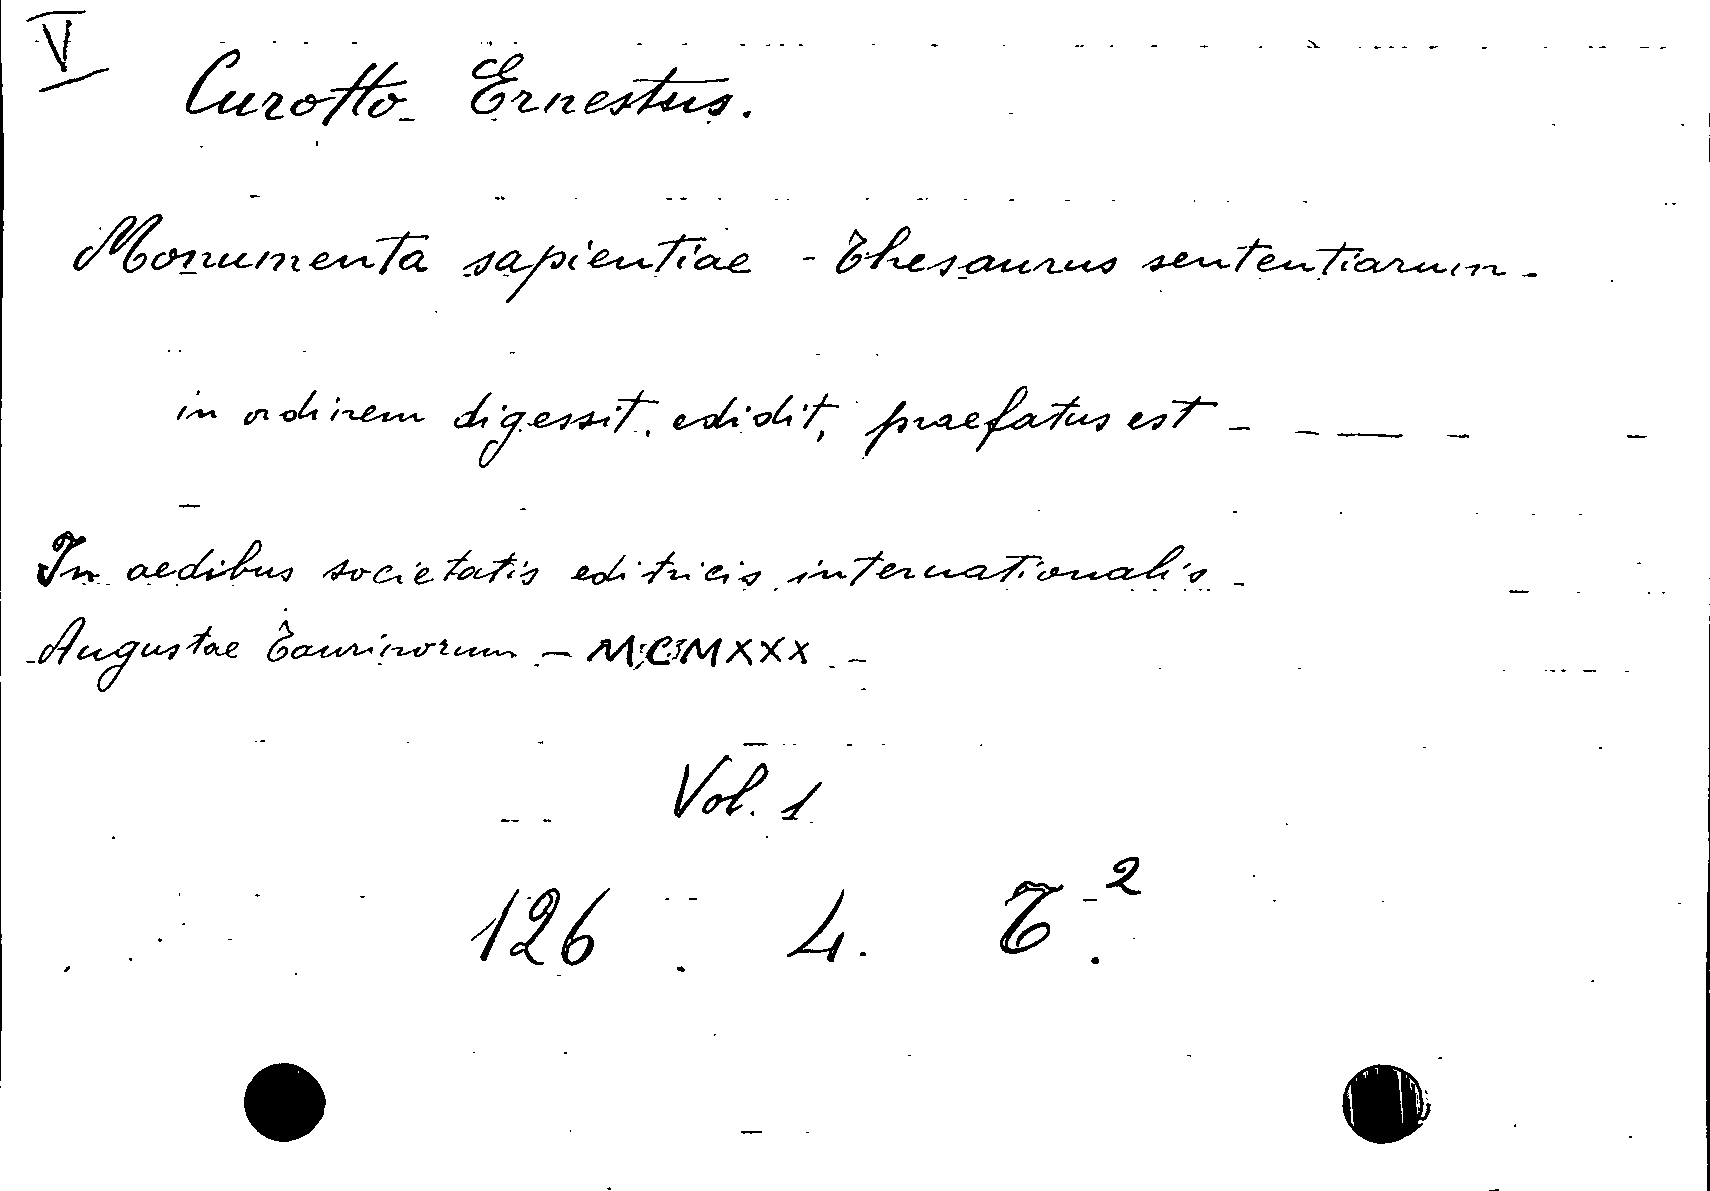 V
Curotto Ernestus.
Monumenta sapientiae - Thesaurus sententiarum -
in ordinem digessit, edidit, praefatus est - - — -
In aedibus societatis editricis internationalis -
Augustae Taurinorum - MCMXXX -
Vol. 1
126 . 4. T².